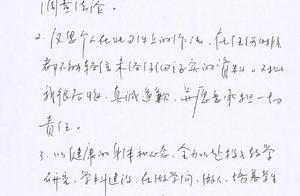 2. 反思个人在此事件上的作法，在任何时候
都不能轻信未经仔细证实的资料。对此
我很后悔，真诚道歉，并愿意承担一切
责任。
3. 以健康的身体和心态，全力以赴投入教学
研究，学科建设，在做学问、做人、培养学生